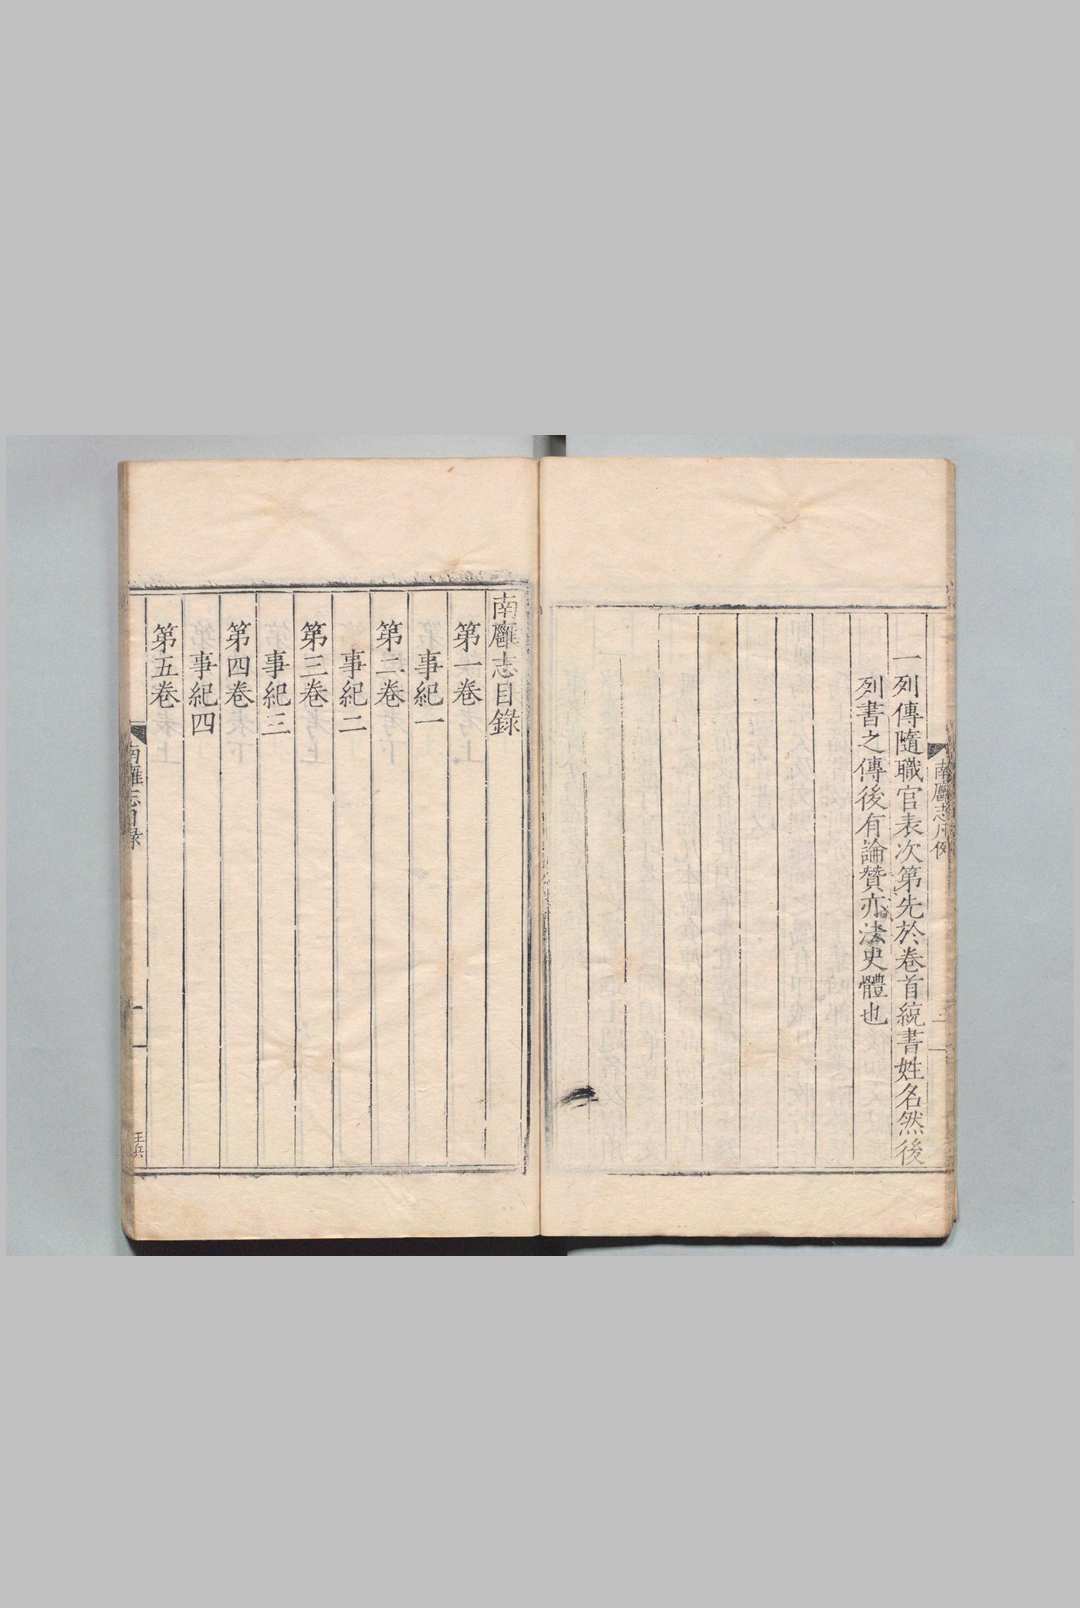 南廱志凡例
二
一列傳隨職官表次第先於卷首統書姓名然後
列書之傳後有論贊亦法史體也
南廱志目錄
第一卷
事紀一
第二卷
事紀二
第三卷
事紀三
第四卷
事紀四
第五卷
南廱志目錄
一